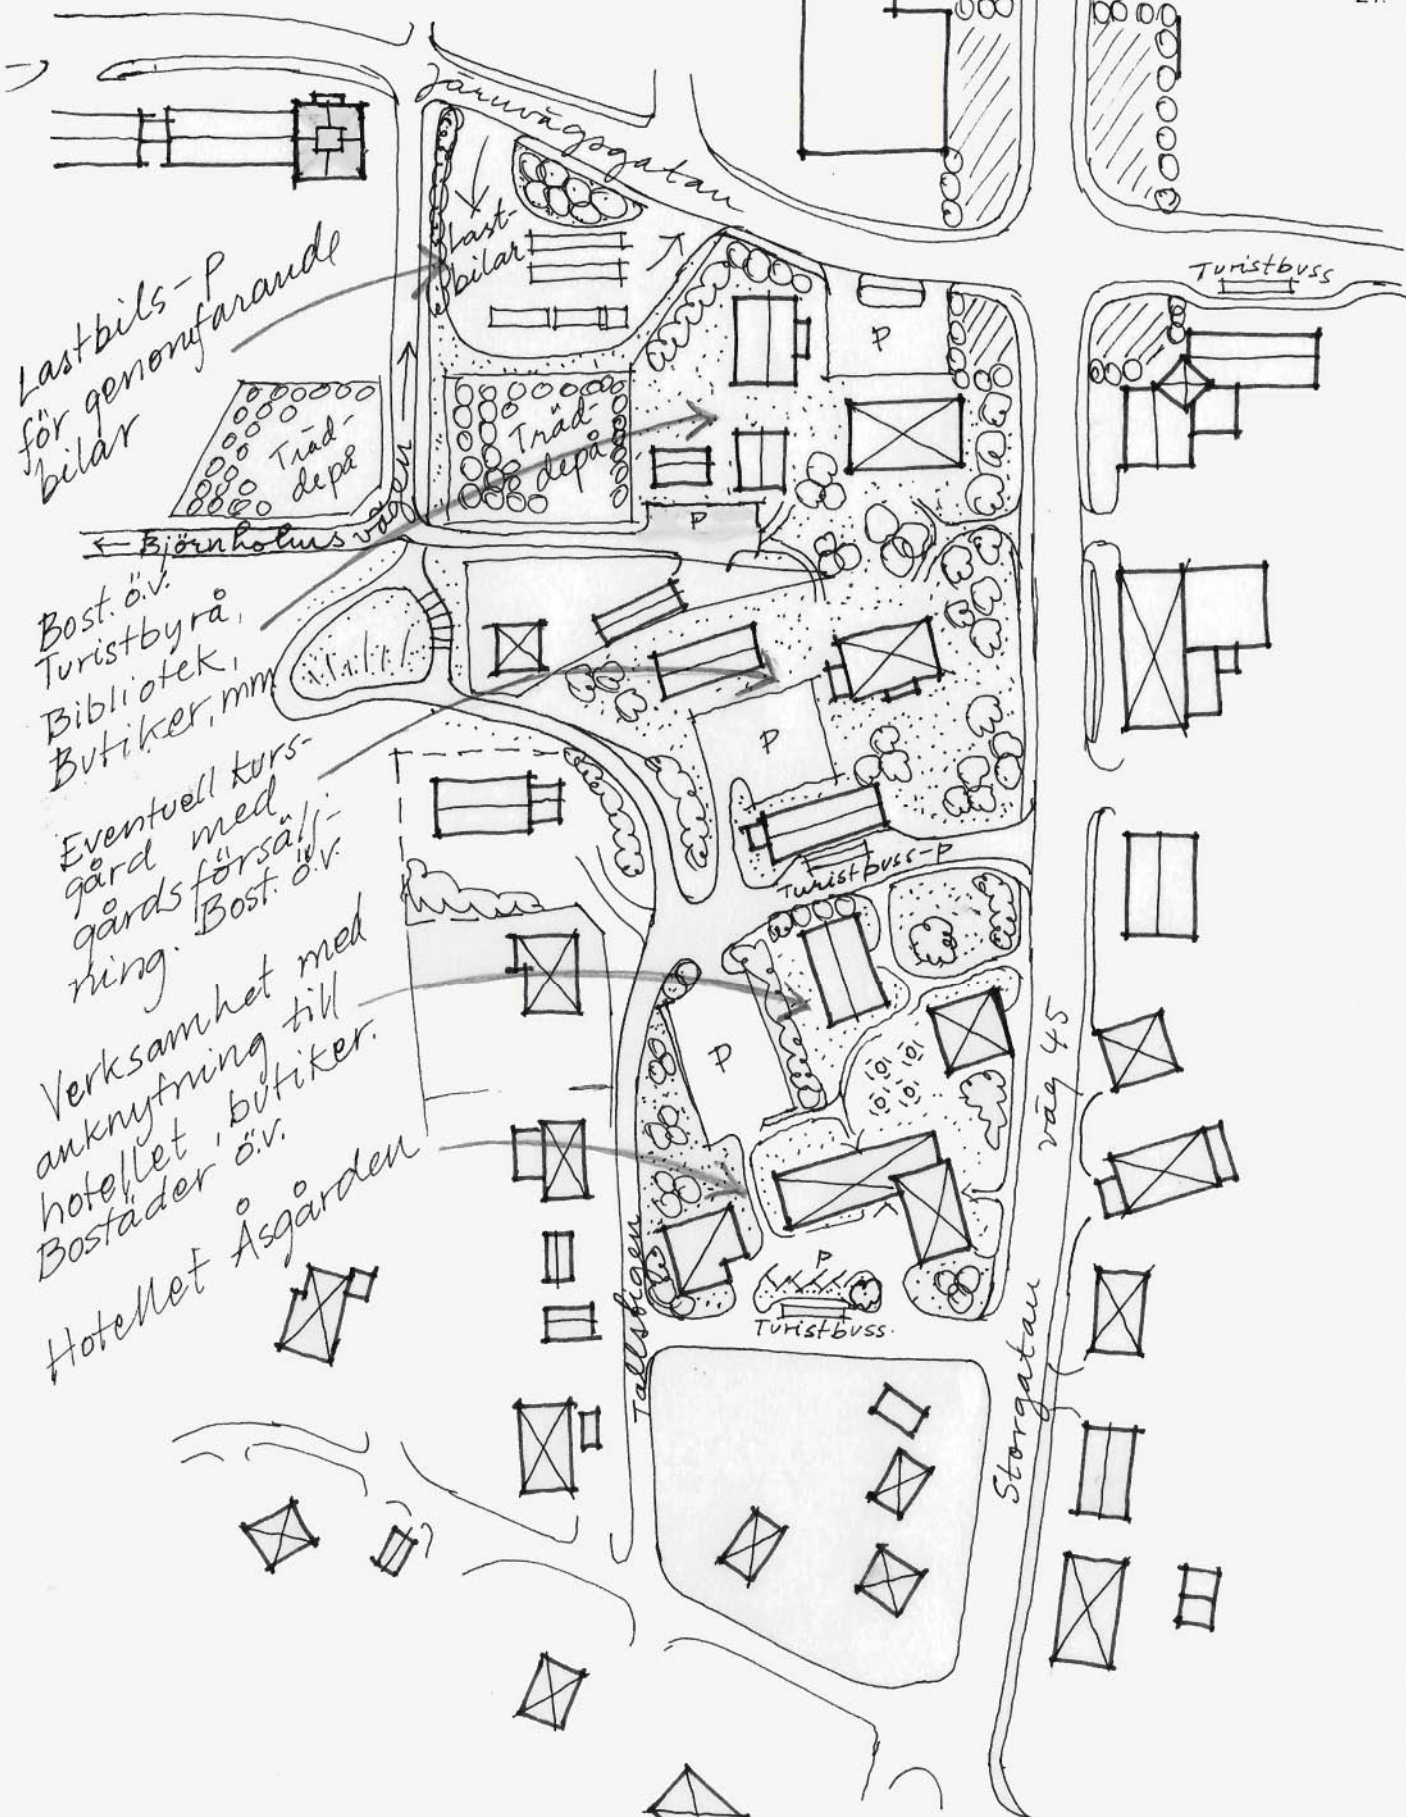 Järnvägsgatan
Last-
bilar
Turistbuss
P
Lastbils-P
för genomfarande
bilar
Träd-
depå
Träd-
depå
P
← Björnholmsvägen
Bost. ö.v.
Turistbyrå,
Bibliotek,
Butiker, mm
P
Eventuell kurs-
gård med
gårdsförsälj-
ning. Bost. ö.v.
Turistbuss-P
Verksamhet med
anknytning till
hotellet, butiker.
Bostäder ö.v.
P
väg 45
Hotellet Åsgården
P
Turistbuss.
Tallstigen
Storgatan